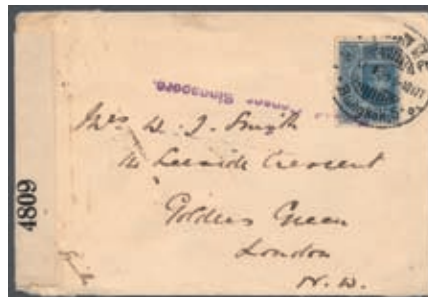 Censor Singapore.
Mrs W. J. Smyth
14 Leeside Crescent
Golders Green
London
N.W.
4809